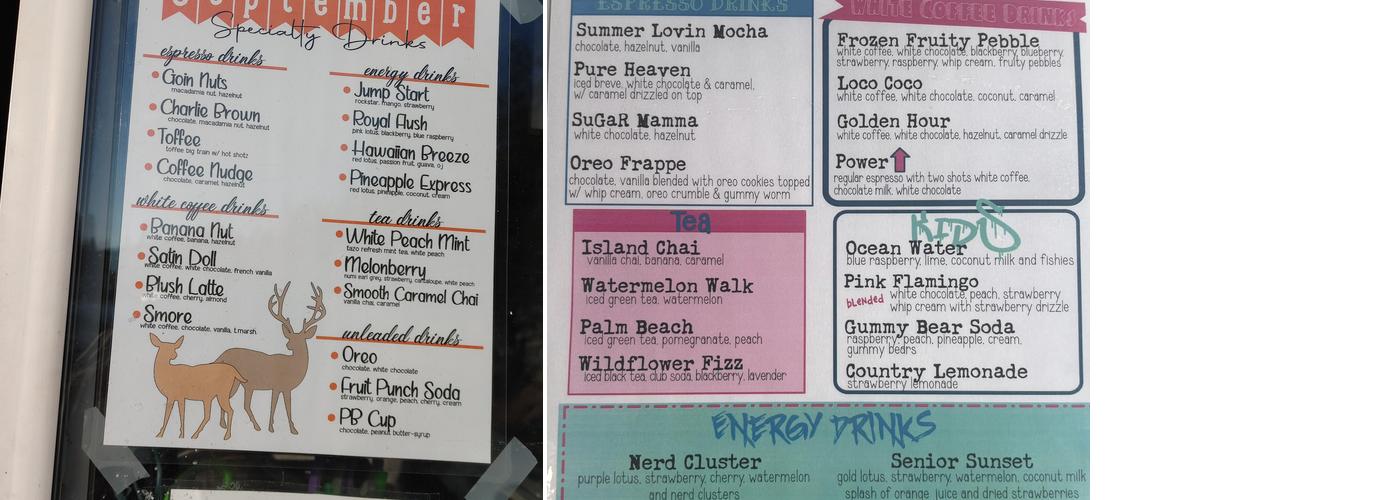 September
Specialty Drinks
espresso drinks
Goin Nuts
macadamia nut, hazelnut
Charlie Brown
chocolate, macadamia nut, hazelnut
Toffee
toffee big train w/ hot shotz
Coffee Nudge
chocolate, caramel, hazelnut
white coffee drinks
Banana Nut
white coffee, banana, hazelnut
Satin Doll
white coffee, white chocolate, french vanilla
Blush Latte
white coffee, cherry, almond
Smore
white coffee, chocolate, vanilla, t.marsh
energy drinks
Jump Start
rockstar, mango, strawberry
Royal Flush
pink lotus, blackberry, blue raspberry
Hawaiian Breeze
red lotus, passion fruit, guava, oj
Pineapple Express
red lotus, pineapple, coconut, cream
tea drinks
White Peach Mint
tazo refresh mint tea, white peach
Melonberry
numi earl grey, strawberry, cantaloupe, white peach
Smooth Caramel Chai
vanilla chai, caramel
unleaded drinks
Oreo
chocolate, white chocolate
Fruit Punch Soda
strawberry, orange, peach, cherry, cream
PB Cup
chocolate, peanut butter-syrup
ESPRESSO DRINKS
Summer Lovin Mocha
chocolate, hazelnut, vanilla
Pure Heaven
iced breve, white chocolate & caramel,
w/ caramel drizzled on top
SuGaR Mamma
white chocolate, hazelnut
Oreo Frappe
chocolate, vanilla blended with oreo cookies topped
w/ whip cream, oreo crumble & gummy worm
WHITE COFFEE DRINKS
Frozen Fruity Pebble
white coffee, white chocolate, blackberry, blueberry,
strawberry, raspberry, whip cream, fruity pebbles
Loco Coco
white coffee, white chocolate, coconut, caramel
Golden Hour
white coffee, white chocolate, hazelnut, caramel drizzle
Power
regular espresso with two shots white coffee,
chocolate milk, white chocolate
Tea
Island Chai
vanilla chai, banana, caramel
Watermelon Walk
iced green tea, watermelon
Palm Beach
iced green tea, pomegranate, peach
Wildflower Fizz
iced black tea, club soda, blackberry, lavender
KIDS
Ocean Water
blue raspberry, lime, coconut milk and fishies
Pink Flamingo
blended
white chocolate, peach, strawberry
whip cream with strawberry drizzle
Gummy Bear Soda
raspberry, peach, pineapple, cream,
gummy bears
Country Lemonade
strawberry lemonade
ENERGY DRINKS
Nerd Cluster
purple lotus, strawberry, cherry, watermelon
and nerd clusters
Senior Sunset
gold lotus, strawberry, watermelon, coconut milk
splash of orange juice and dried strawberries